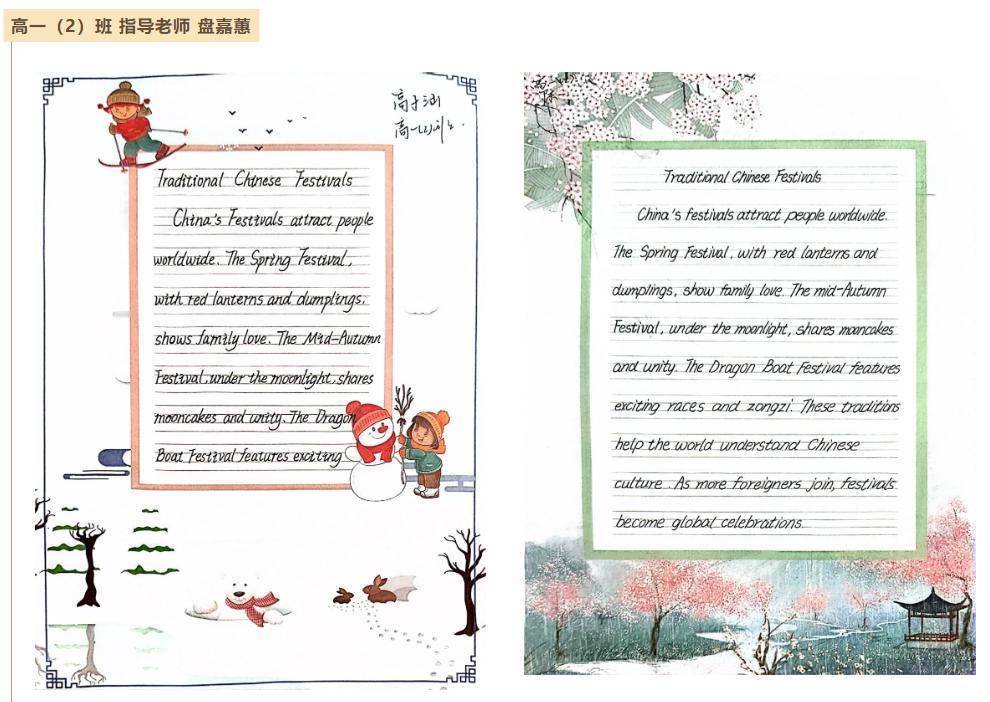 高一（2）班 指导老师 盘嘉蕙
高子涵
高一(2)
Traditional Chinese Festivals
China's Festivals attract people
worldwide. The Spring Festival,
with red lanterns and dumplings,
shows family love. The Mid-Autumn
Festival, under the moonlight, shares
mooncakes and unity. The Dragon
Boat Festival features exciting
Traditional Chinese Festivals
China's festivals attract people worldwide.
The Spring Festival, with red lanterns and
dumplings, show family love. The mid-Autumn
Festival, under the moonlight, shares mooncakes
and unity. The Dragon Boat Festival features
exciting races and zongzi. These traditions
help the world understand Chinese
culture. As more foreigners join, festivals
become global celebrations.